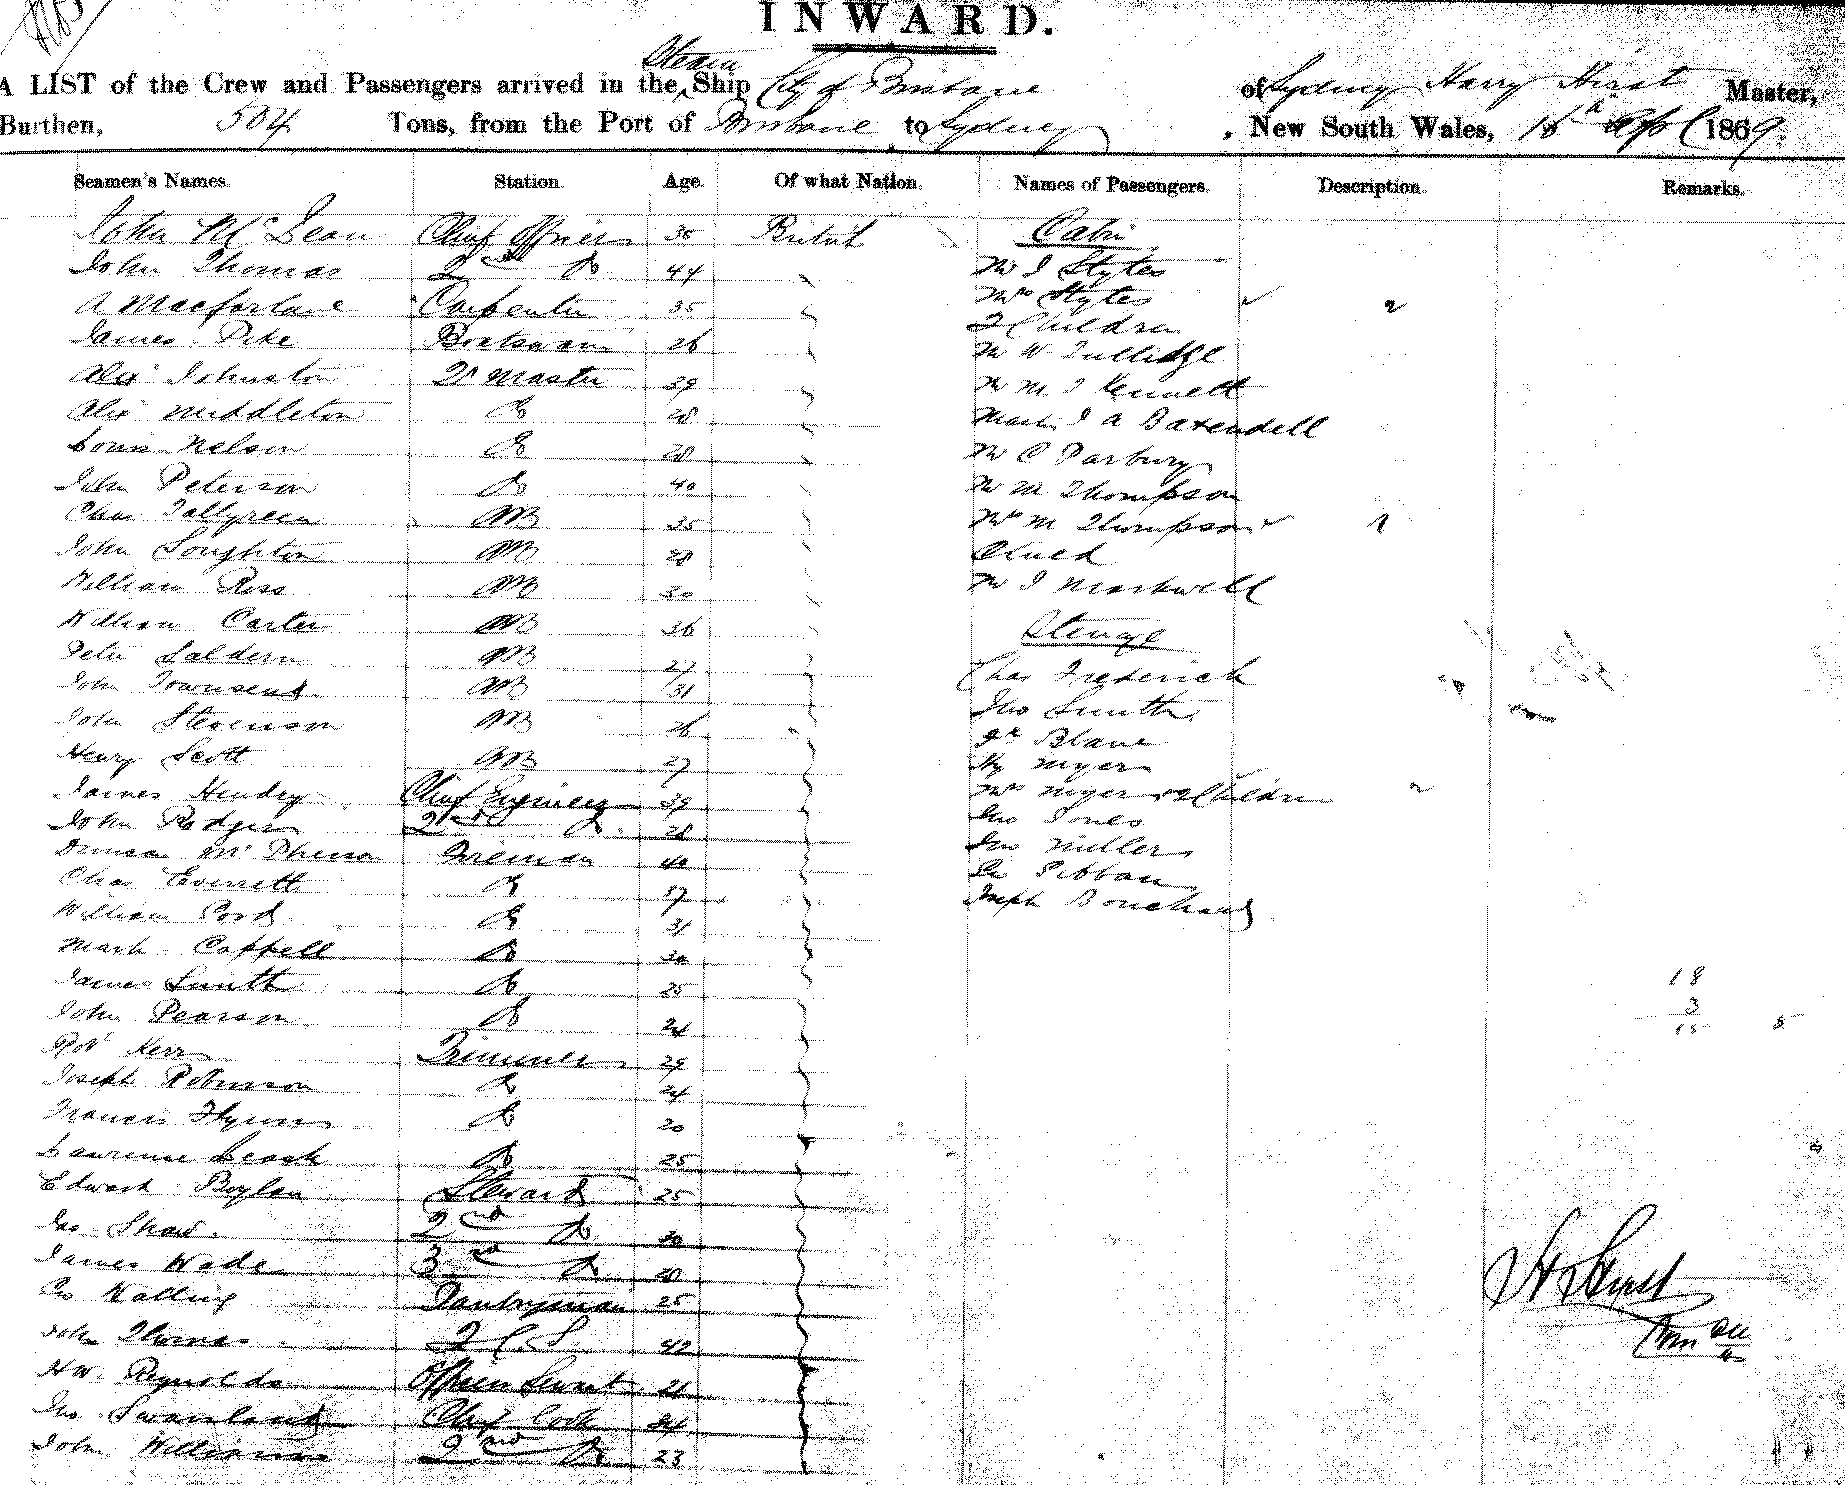 INWARD.
A LIST of the Crew and Passengers arrived in the Steam Ship City of Brisbane of Sydney Harry Hirst Master,
Burthen, 504 Tons, from the Port of Brisbane to Sydney, New South Wales, 1869.
Seamen's Names. Station. Age. Of what Nation. Names of Passengers. Description. Remarks.
John McLean Chief Officer 35 British Cabin
John Thomas 2nd Do 44 Mr J Styles
A Macfarlane Carpenter 35 Mrs Styles
2 Children
James Pike Boatswain 26 Mr W Tullidge
Alexr Johnston Qr Master 29 Mr M J Kennett
Alexr Middleton Do 28 J A Baxendell
Louis Nelson Do 28 Mr C Parbury
John Peterson Do 40 Mr M Thompson
Chas Tallgreen AB 35 Mrs M Thompson
John Loughton AB 28 Child
William Ross AB 30 Mr J Markwell
William Carter AB 36 Steerage
Peter Saldern AB 27 Chas Frederick
John Townsend AB 31 Jno Smith
John Stevenson AB 26 Blane
Henry Scott AB 27 Hy Myer
James Hendry Chief Engineer 39 Mrs Myer & 2 Children
John Rodger 2nd Do 28 Jno Jones
Duncan McPherson Fireman 40 Jno Miller
Chas Everett Do 37 Geo Gibbon
William Ford Do 31 Joseph Bouchard
Mark Cappell Do 30
James Smith Do 25 18
John Pearson Do 24 3
15 5
Robt Kerr Trimmer 29
Joseph Robinson Do 24
Francis Flynn Do 20
Lawrence Leask Do 25
Edward Boylan Steward 25
Jno Shaw 2nd Do 30
James Wade 3rd Do 20
Geo Walling Pantryman 25 H Hirst
John Thomas F C S 42
HW Reynolds Officers Servant 21
Jno Swanland Chief Cook 34
John Williams 2nd Do 23